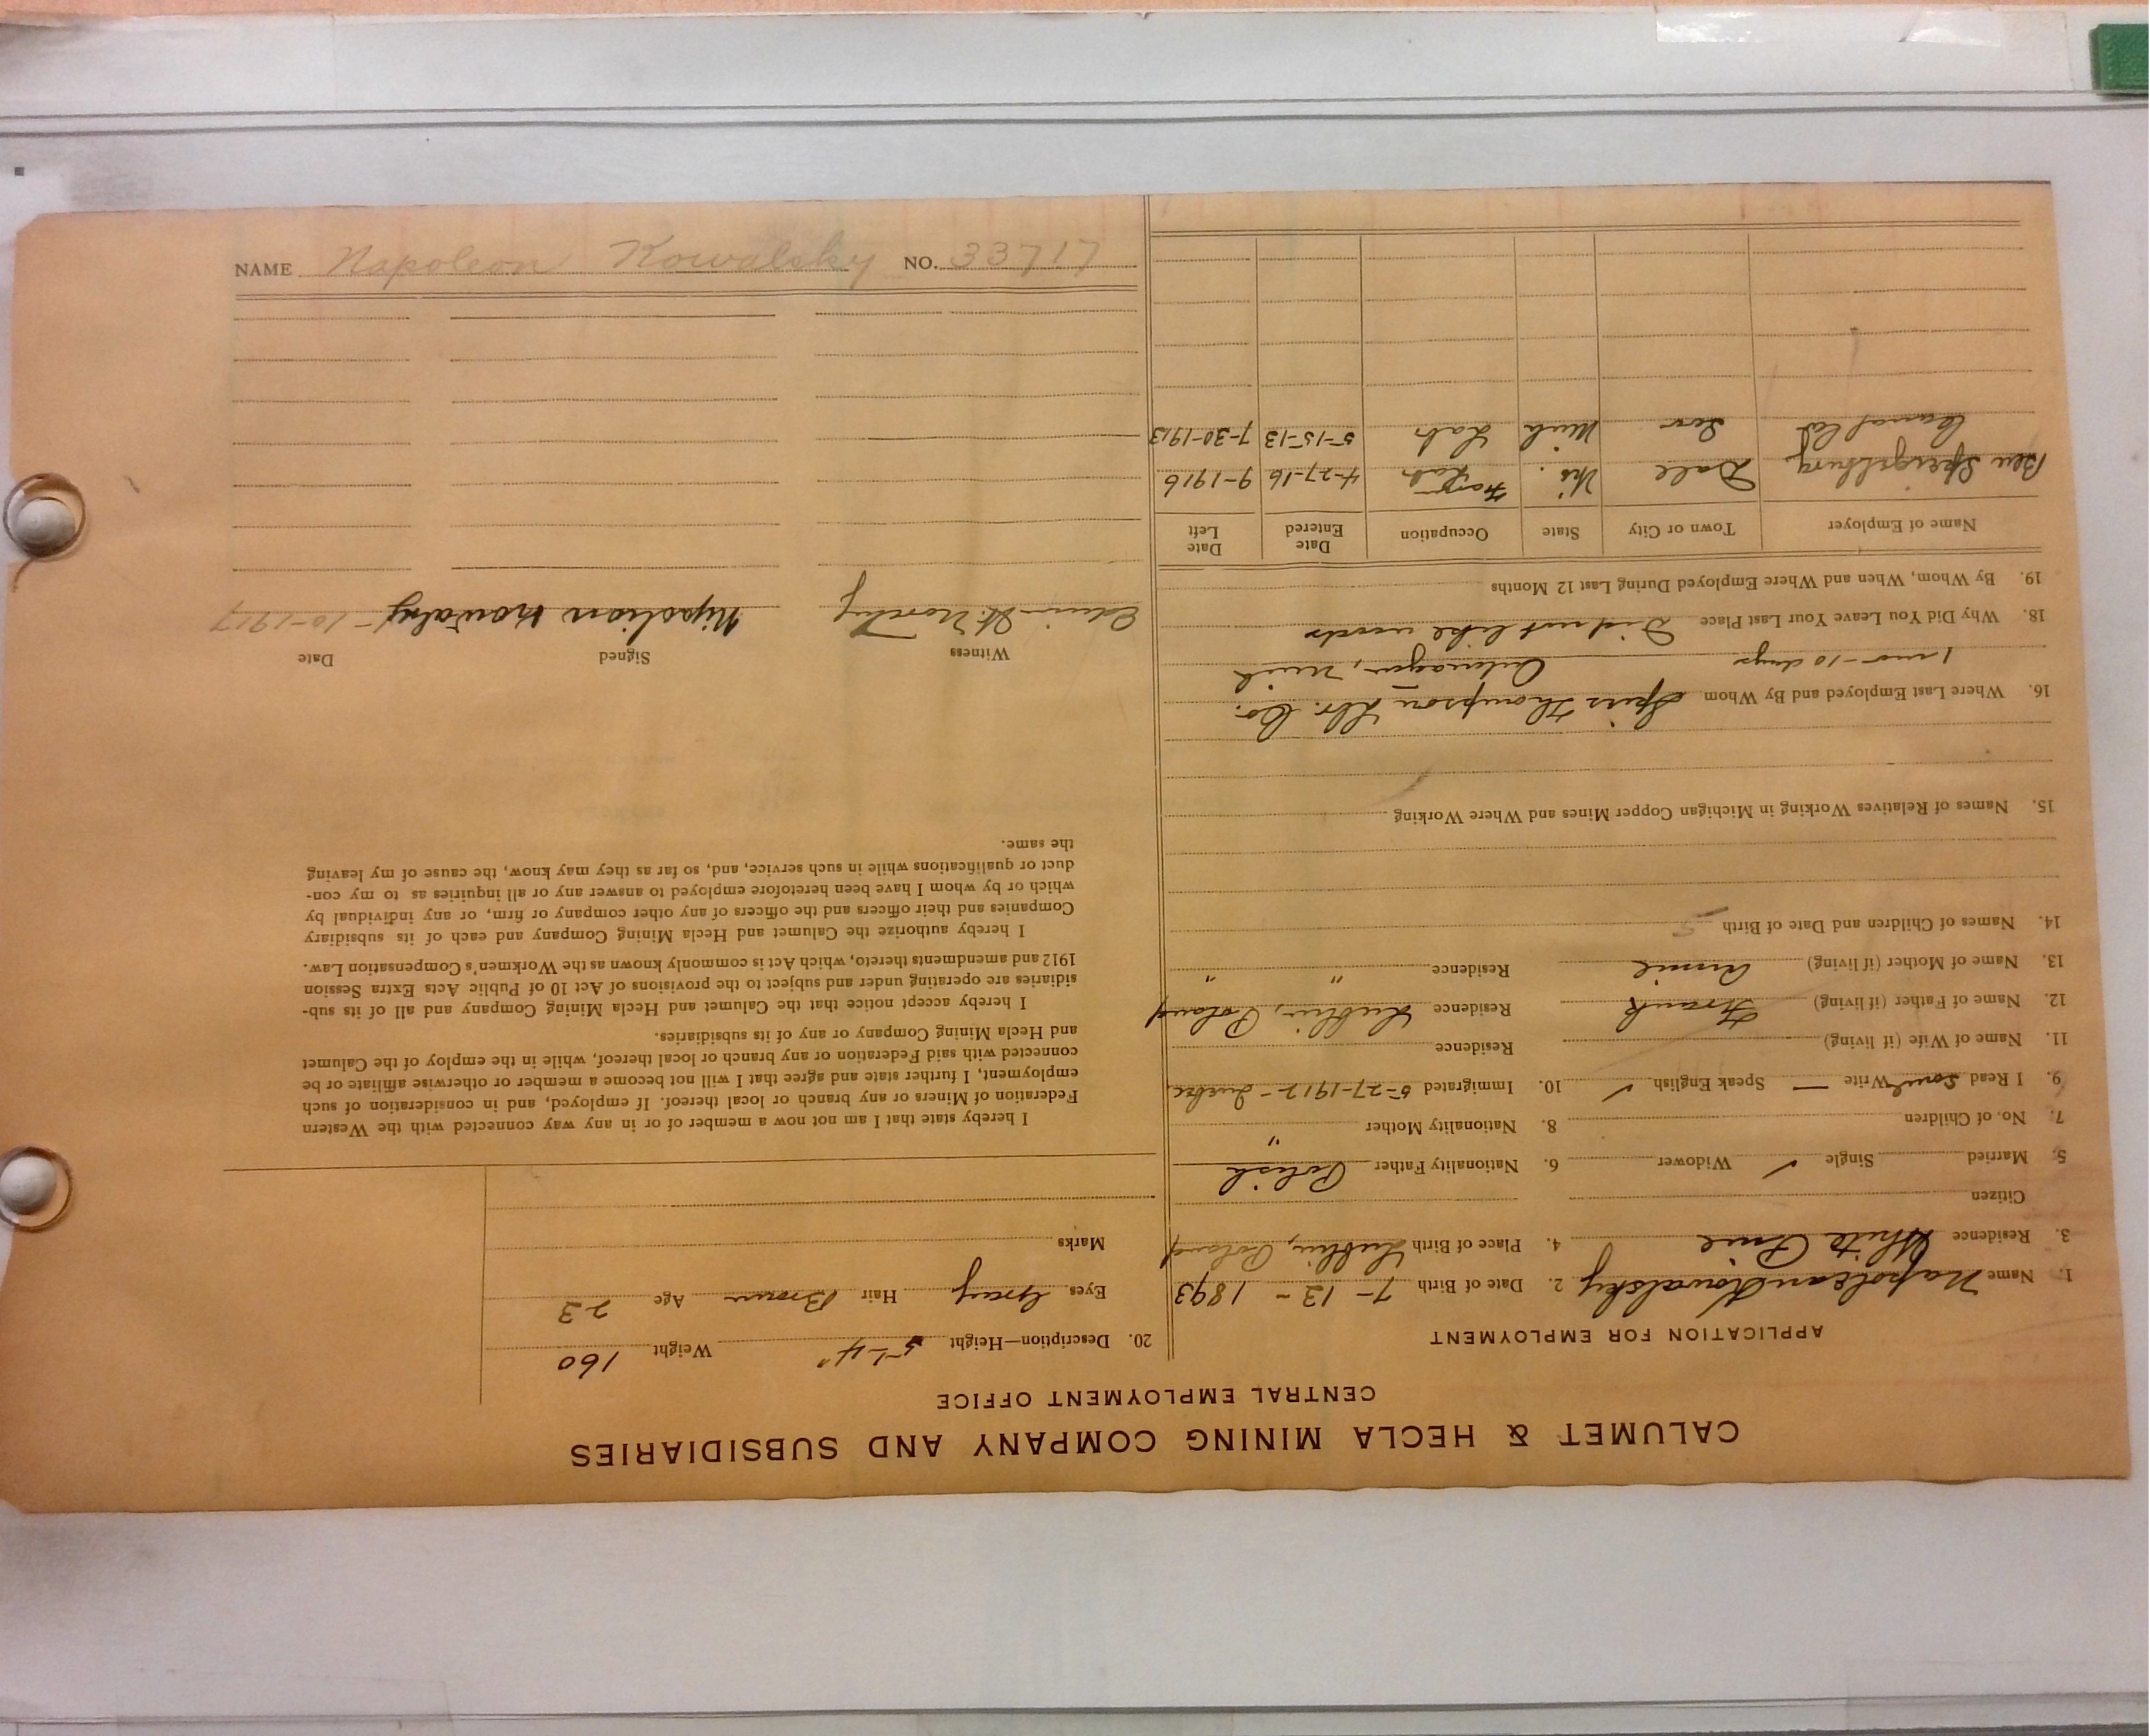 CALUMET & HECLA MINING COMPANY AND SUBSIDIARIES
CENTRAL EMPLOYMENT OFFICE
APPLICATION FOR EMPLOYMENT
1. Name Napolean Kowalsky 2. Date of Birth 7-13-1893
3. Residence White Pine 4. Place of Birth Lublin, Poland
Citizen
5. Married Single ✓ Widower 6. Nationality Father Polish
7. No. of Children 8. Nationality Mother "
9. I Read some Write — Speak English ✓ 10. Immigrated 5-27-1912 - Quebec
11. Name of Wife (if living) Residence
12. Name of Father (if living) Frank Residence Lublin, Poland
13. Name of Mother (if living) Annie Residence " "
14. Names of Children and Date of Birth
15. Names of Relatives Working in Michigan Copper Mines and Where Working
16. Where Last Employed and By Whom Thompson Lbr. Co.
1 mo-10 days Mich
18. Why Did You Leave Your Last Place Did not like woods
19. By Whom, When and Where Employed During Last 12 Months
Name of Employer Town or City State Occupation Date Entered Date Left
Ben Dale Wis. Farm Lab 4-27-16 9-1916
Mich Lab 5-15-13 7-30-1913
20. Description—Height 5'-4" Weight 160
Eyes Gray Hair Brown Age 23
Marks
I hereby state that I am not now a member of or in any way connected with the Western
Federation of Miners or any branch or local thereof. If employed, and in consideration of such
employment, I further state and agree that I will not become a member or otherwise affiliate or be
connected with said Federation or any branch or local thereof, while in the employ of the Calumet
and Hecla Mining Company or any of its subsidiaries.
I hereby accept notice that the Calumet and Hecla Mining Company and all of its sub-
sidiaries are operating under and subject to the provisions of Act 10 of Public Acts Extra Session
1912 and amendments thereto, which Act is commonly known as the Workmen's Compensation Law.
I hereby authorize the Calumet and Hecla Mining Company and each of its subsidiary
Companies and their officers and the officers of any other company or firm, or any individual by
which or by whom I have been heretofore employed to answer any or all inquiries as to my con-
duct or qualifications while in such service, and, so far as they may know, the cause of my leaving
the same.
Witness Signed Date
Edwin 1-10-1917
NAME Napoleon Kowalsky NO. 33717